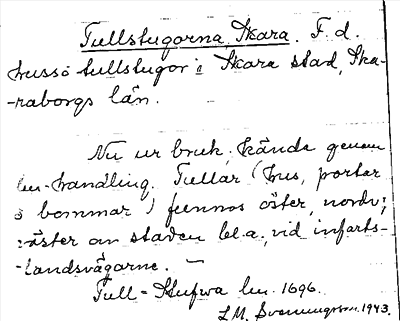 Tullstugorna, Skara. F. d.
hus så tullstugor i Skara stad, Ska-
-raborgs län.
Nu ur bruk; kända genom
hu-handling. Tullar (hus, portar
o bommar) funnos öster, nordv;
väster om staden bl.a. vid infarts-
-landsvägarne. —
Tull-Stufwa hu. 1696.
L.M. Svenungsson. 1943.